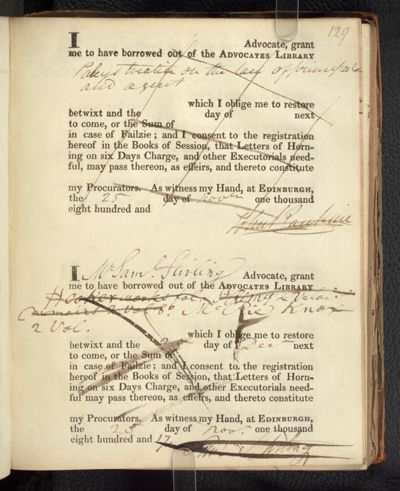 129
I Advocate, grant
me to have borrowed out of the ADVOCATES LIBRARY
Paley's treatise on the law of principal
and agent
which I oblige me to restore
betwixt and the day of next
to come, or the Sum of
in case of Failzie; and I consent to the registration
hereof in the Books of Session, that Letters of Horn-
ing on six Days Charge, and other Executorials need-
ful, may pass thereon, as effeirs, and thereto constitute
my Procurators. As witness my Hand, at EDINBURGH,
the 25 day of Novr one thousand
eight hundred and
John
I Mr Saml Stirling Advocate, grant
me to have borrowed out of the ADVOCATES LIBRARY
works
McCrie Knox
2 Vol.
which I oblige me to restore
betwixt and the day of Dec next
to come, or the Sum of
in case of Failzie; and I consent to the registration
hereof in the Books of Session, that Letters of Horn-
ing on six Days Charge, and other Executorials need-
ful may pass thereon, as effeirs, and thereto constitute
my Procurators. As witness my Hand, at EDINBURGH,
the 25 day of Novr one thousand
eight hundred and 17